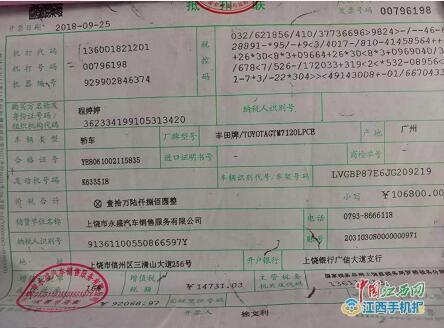 抵扣联
开票日期 2018-09-25 发票号码 00796198
机打代码 136001821201
机打号码 00796198
机器编号 929902846374
税控码
032/621856/410/37736696>9824>
28891*-95/-+9<3/4017-/810-41458564+
+26*30<8*3+09664+26*30<8*3+0969040/
/678<7+526-/172033+319<2<*532-08956<
1-7*3/--22*304>><49143008+-01/6670433
购买方名称及身份证号码/组织机构代码 程婷婷
362334199105313420
纳税人识别号
车辆类型 轿车 厂牌型号 丰田牌/TOYOTAGTM7120LPCE 产地 广州
合格证号 YE8061002115835 进口证明书号 商检单号
发动机号码 K633518 车辆识别代号/车架号码 LVGBP87E6JG209219
价税合计 ⊗壹拾万陆仟捌佰圆整 小写 ¥106800.00
销货单位名称 上饶市永盛汽车销售服务有限公司 电话 0793-8666118
纳税人识别号 91361100550866597Y 账号 203103080000000971
地址 上饶市信州区三清山大道256号 开户银行 上饶银行广信大道支行
增值税 16% 增值税税额 ¥14731.03 主管税务机关及代码
92068.97
开票人 徐文利
中国江西网
江西手机报